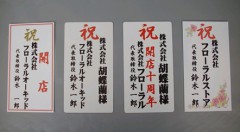 祝
開店
株式会社
フローラルオーキッド
代表取締役 鈴木一郎
祝
株式会社 胡蝶蘭様
株式会社
フローラルオーキッド
代表取締役 鈴木一郎
祝
開店十周年
株式会社 胡蝶蘭様
株式会社フローラル
代表取締役 鈴木一郎
祝
株式会社
フローラルストア
代表取締役 鈴木一郎